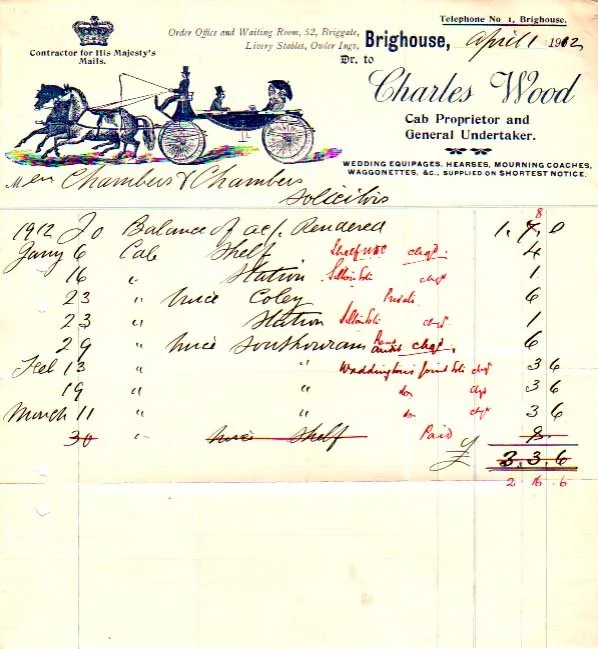 Telephone No 1, Brighouse.
Contractor for His Majesty's
Mails.
Order Office and Waiting Room, 52, Briggate,
Livery Stables, Owler Ings,
Brighouse, April 1 1912
Dr. to
Charles Wood
Cab Proprietor and
General Undertaker.
WEDDING EQUIPAGES, HEARSES, MOURNING COACHES,
WAGGONETTES, &C., SUPPLIED ON SHORTEST NOTICE.
Chambers & Chambers
Solicitors
1912 To Balance of a/c Rendered 1. 7. 0 8
6 Cab Shelf chgd 4
16 " Station chgd 1
23 " twice Coley Private 6
23 " Station chgd 1
29 " twice Southowram chgd. 6
Feb 13 " " Waddingtons joint chgd 3 6
19 " " do chgd 3 6
March 11 " " do chgd 3 6
30 " twice Shelf Paid 8.
£ 3. 3. 6
2 16 6